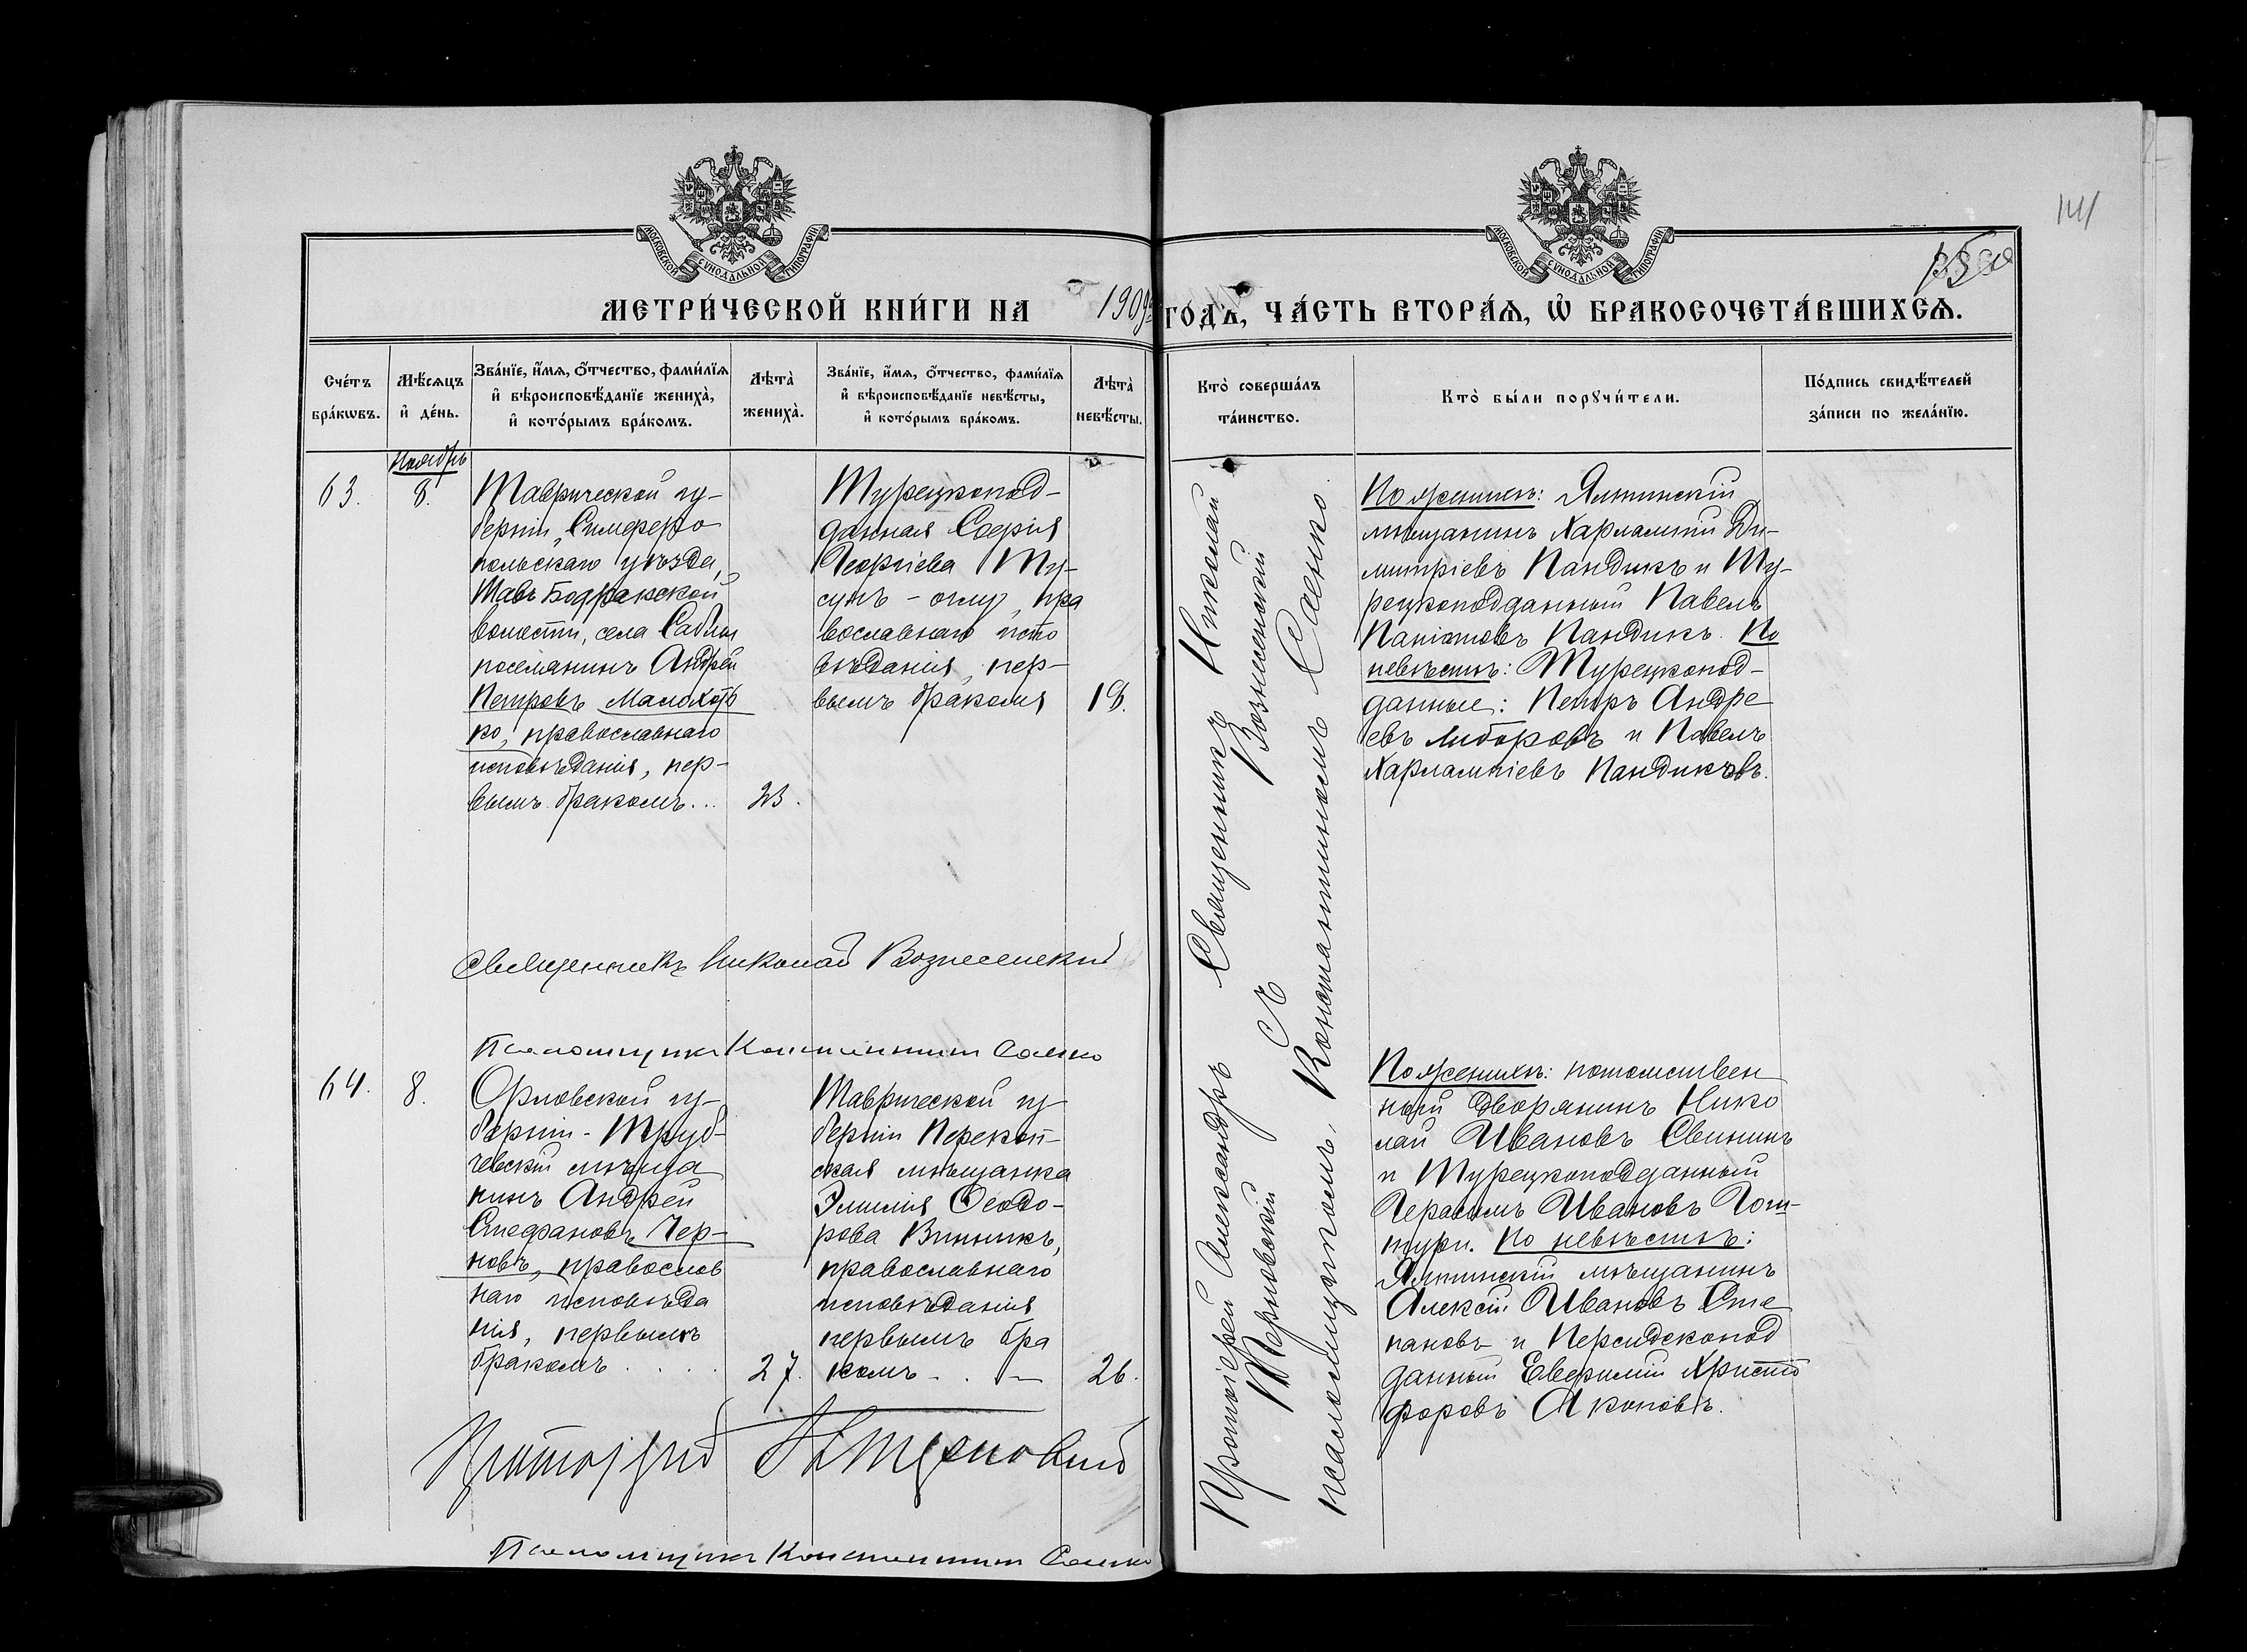 141
МОСКОВСКОЙ СѴНОДАЛЬНОЙ ТИПОГРАФІИ
МОСКОВСКОЙ СѴНОДАЛЬНОЙ ТИПОГРАФІИ
МЕТРИ́ЧЕСКОЙ КНИ́ГИ НА 1909 ГОДЪ, ЧА́СТЬ ВТОРА́Я, Ѡ БРАКОСОЧЕТА́ВШИХСѦ.
Сче́тъ бра́кѡвъ.
Мѣ́сяцъ и҆ де́нь.
Зва́нїе, и҆́мѧ, ѻ҆́тчество, фами́лїѧ
и҆ вѣроисповѣ́данїе жениха̀,
и҆ кото́рымъ бра́комъ.
Лѣта̀ жениха̀.
Зва́нїе, и҆́мѧ, ѻ҆́тчество, фами́лїѧ
и҆ вѣроисповѣ́данїе невѣ́сты,
и҆ кото́рымъ бра́комъ.
Лѣта̀ невѣ́сты.
Кто̀ соверша́лъ та́инство.
Кто̀ бы́ли порꙋчи́тели.
По́дпись свидѣ́телей
за́писи по жела́нїю.
Ноябрь
63.
8.
Таврической гу-
берніи, Симферо
польскаго уѣзда,
Тавъ Бодракской
волости, села Саблы
поселянинъ Андрей
Петровъ Малохать
ко, православнаго
исповѣданія, пер-
вымъ бракомъ...
23.
Турецкопод-
данная Софія
Георгіева Ту-
сунъ-оглу, пра
вославнаго испо
вѣданія, пер-
вымъ бракомъ
18.
По женихѣ: Ялтинскій
мѣщанинъ Харлампій Ди-
митріевъ Пандикъ и Ту-
рецкоподданный Павелъ
Пандикъ. По
невѣстѣ: Турецкопод-
данные: Петръ Андре
евъ и Павелъ
Харлампіевъ Пандиковъ.
Священникъ Николай Вознесенскій
Псаломщикъ Константинъ Саенко
64.
8.
Орловской гу-
берніи-Труб-
чевскій мѣща
нинъ Андрей
Стефановъ Чер-
новъ, православ
наго исповѣда
нія, первымъ
бракомъ....
27.
Таврической гу
берніи Перекоп-
ская мѣщанка
Эмилія Ѳеодо-
рова Винникъ,
православнаго
исповѣданія
первымъ бра
комъ
26.
По женихѣ: потомствен
ный дворянинъ Нико
лай Ивановъ Свининъ
и Турецкоподданный
Герасимъ Ивановъ
По невѣстѣ:
Ялтинскій мѣщанинъ
Алексій Ивановъ Сте
пановъ и Персидскопод
данный Евфимій Христо
форовъ Акоповъ.
Протоіерей А Терновскій
Псаломщикъ Константинъ Саенко
Протоіерей Александръ Священникъ Николай
Терновскій съ Вознесенскій
псаломщикомъ, Константиномъ Саенко.